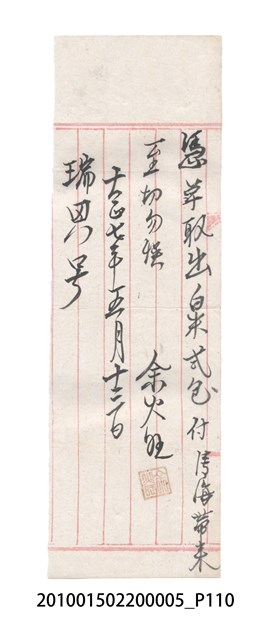 憑單取出白米弍包付清海帶來
至切勿悞 余火旺
大正七年五月十二日
瑞男号
201001502200005_P110